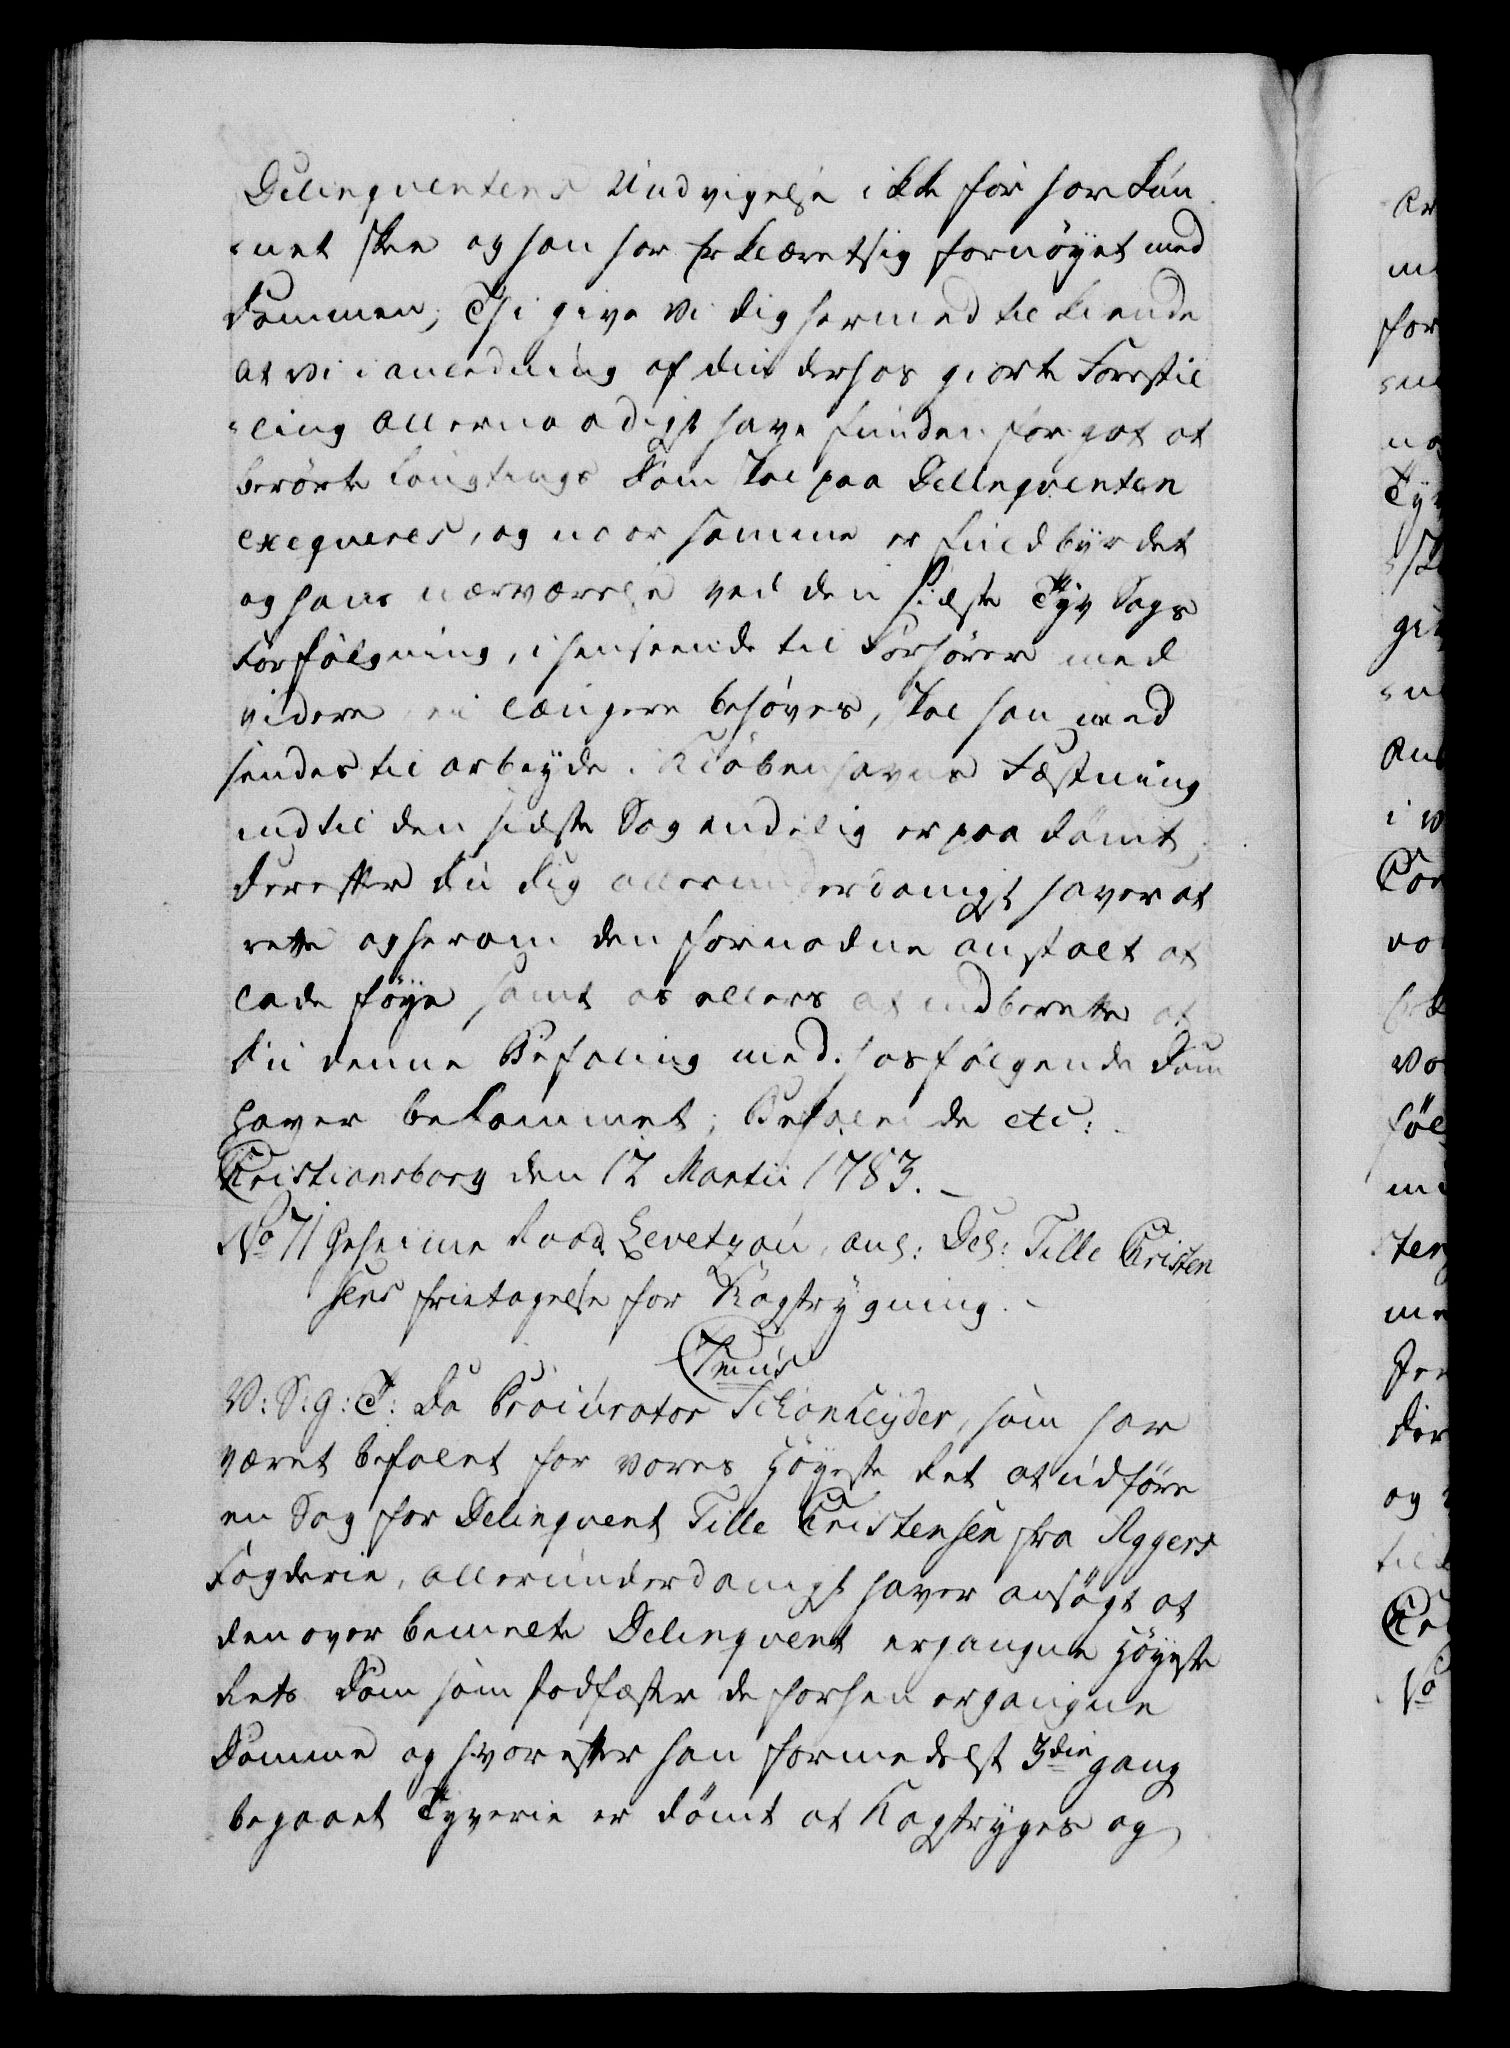 Delinquentens Undvigelse ikke før har kun
-net skee og han har erklæret sig fornøyet med
Dommen; Thi give Vi dig hermed tilkiende
at vi i anledning af din derhos giorte Forestil
-ling allernaadigst have funden for got at
berørte Laugtings Dom skal paa Delinqventen
exeqveres, og naar samme er fuldbyrdet
og hans nærværelse ved den sidste Tyv Sags
Forfølgning, i henseende til Forhører med
videre ei længere behøves, skal han ned
sendes til arbeyde i Kiøbenhavns Fæstning
indtil den sidste Sag endelig er paa dømt;
derefter du dig allerunderdanigst haver at
rette og herom den fornødne anstalt at
lade føye samt os ellers at indberette at
du denne Befaling med hosfølgende Dom
haver bekommet; Befalende etc:
Christiansborg den 12 Martii 1783.
No 71 Geheime Raad Levetzau, anl: Del: Tille Christen
sens frietagelse for Kagstrygning.
C 7mus
V: S: G: T: Da Procurator Schönheyder, som har
været befalet for vores Høyeste Ret at udføre
en Sag for Delinqvent Tille Christensen fra Aggers
Fogderie, allerunderdanigst haver ansøgt at
den over bemelte Delinqvent ergangne Høyeste
Rets Dom som stadfæster de forhen ergangne
Domme og hvorefter han formedelst 3die gang
begaaet Tyverie er dømt at Kagstryges og